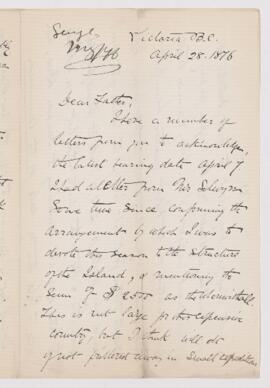 George
Victoria B.C.
April 28. 1876
Dear Father,
I have a number of
letters from you to acknowledge,
the latest bearing date April 7
I had a letter from Mr Selwyn
some time since, confirming the
arrangement by which I was to
devote this season to the structure
of the Island, & mentioning the
sum of $2500 as the
This is not large for this expensive
country, but I think will do
if not frittered away in small expeditions